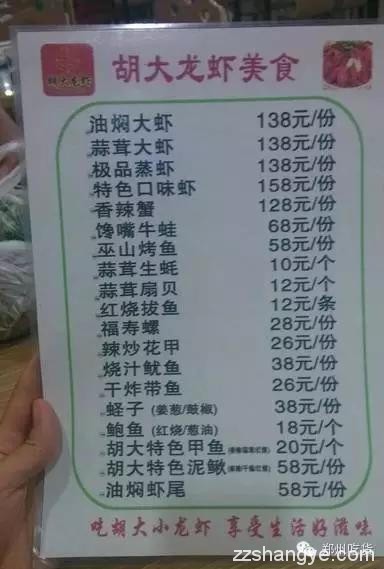 胡大龙虾
胡大龙虾美食
油焖大虾 138元/份
蒜茸大虾 138元/份
极品蒸虾 138元/份
特色口味虾 158元/份
香辣蟹 128元/份
馋嘴牛蛙 68元/份
巫山烤鱼 58元/份
蒜茸生蚝 10元/个
蒜茸扇贝 12元/个
红烧拔鱼 12元/条
福寿螺 28元/份
辣炒花甲 26元/份
烧汁鱿鱼 38元/份
干炸带鱼 26元/份
蛏子 (姜葱/豉椒) 38元/份
鲍鱼 (红烧/葱油) 18元/个
胡大特色甲鱼 20元/个
胡大特色泥鳅 58元/份
油焖虾尾 58元/份
吃胡大小龙虾 享受生活好滋味
郑州吃货
zzshangye.com